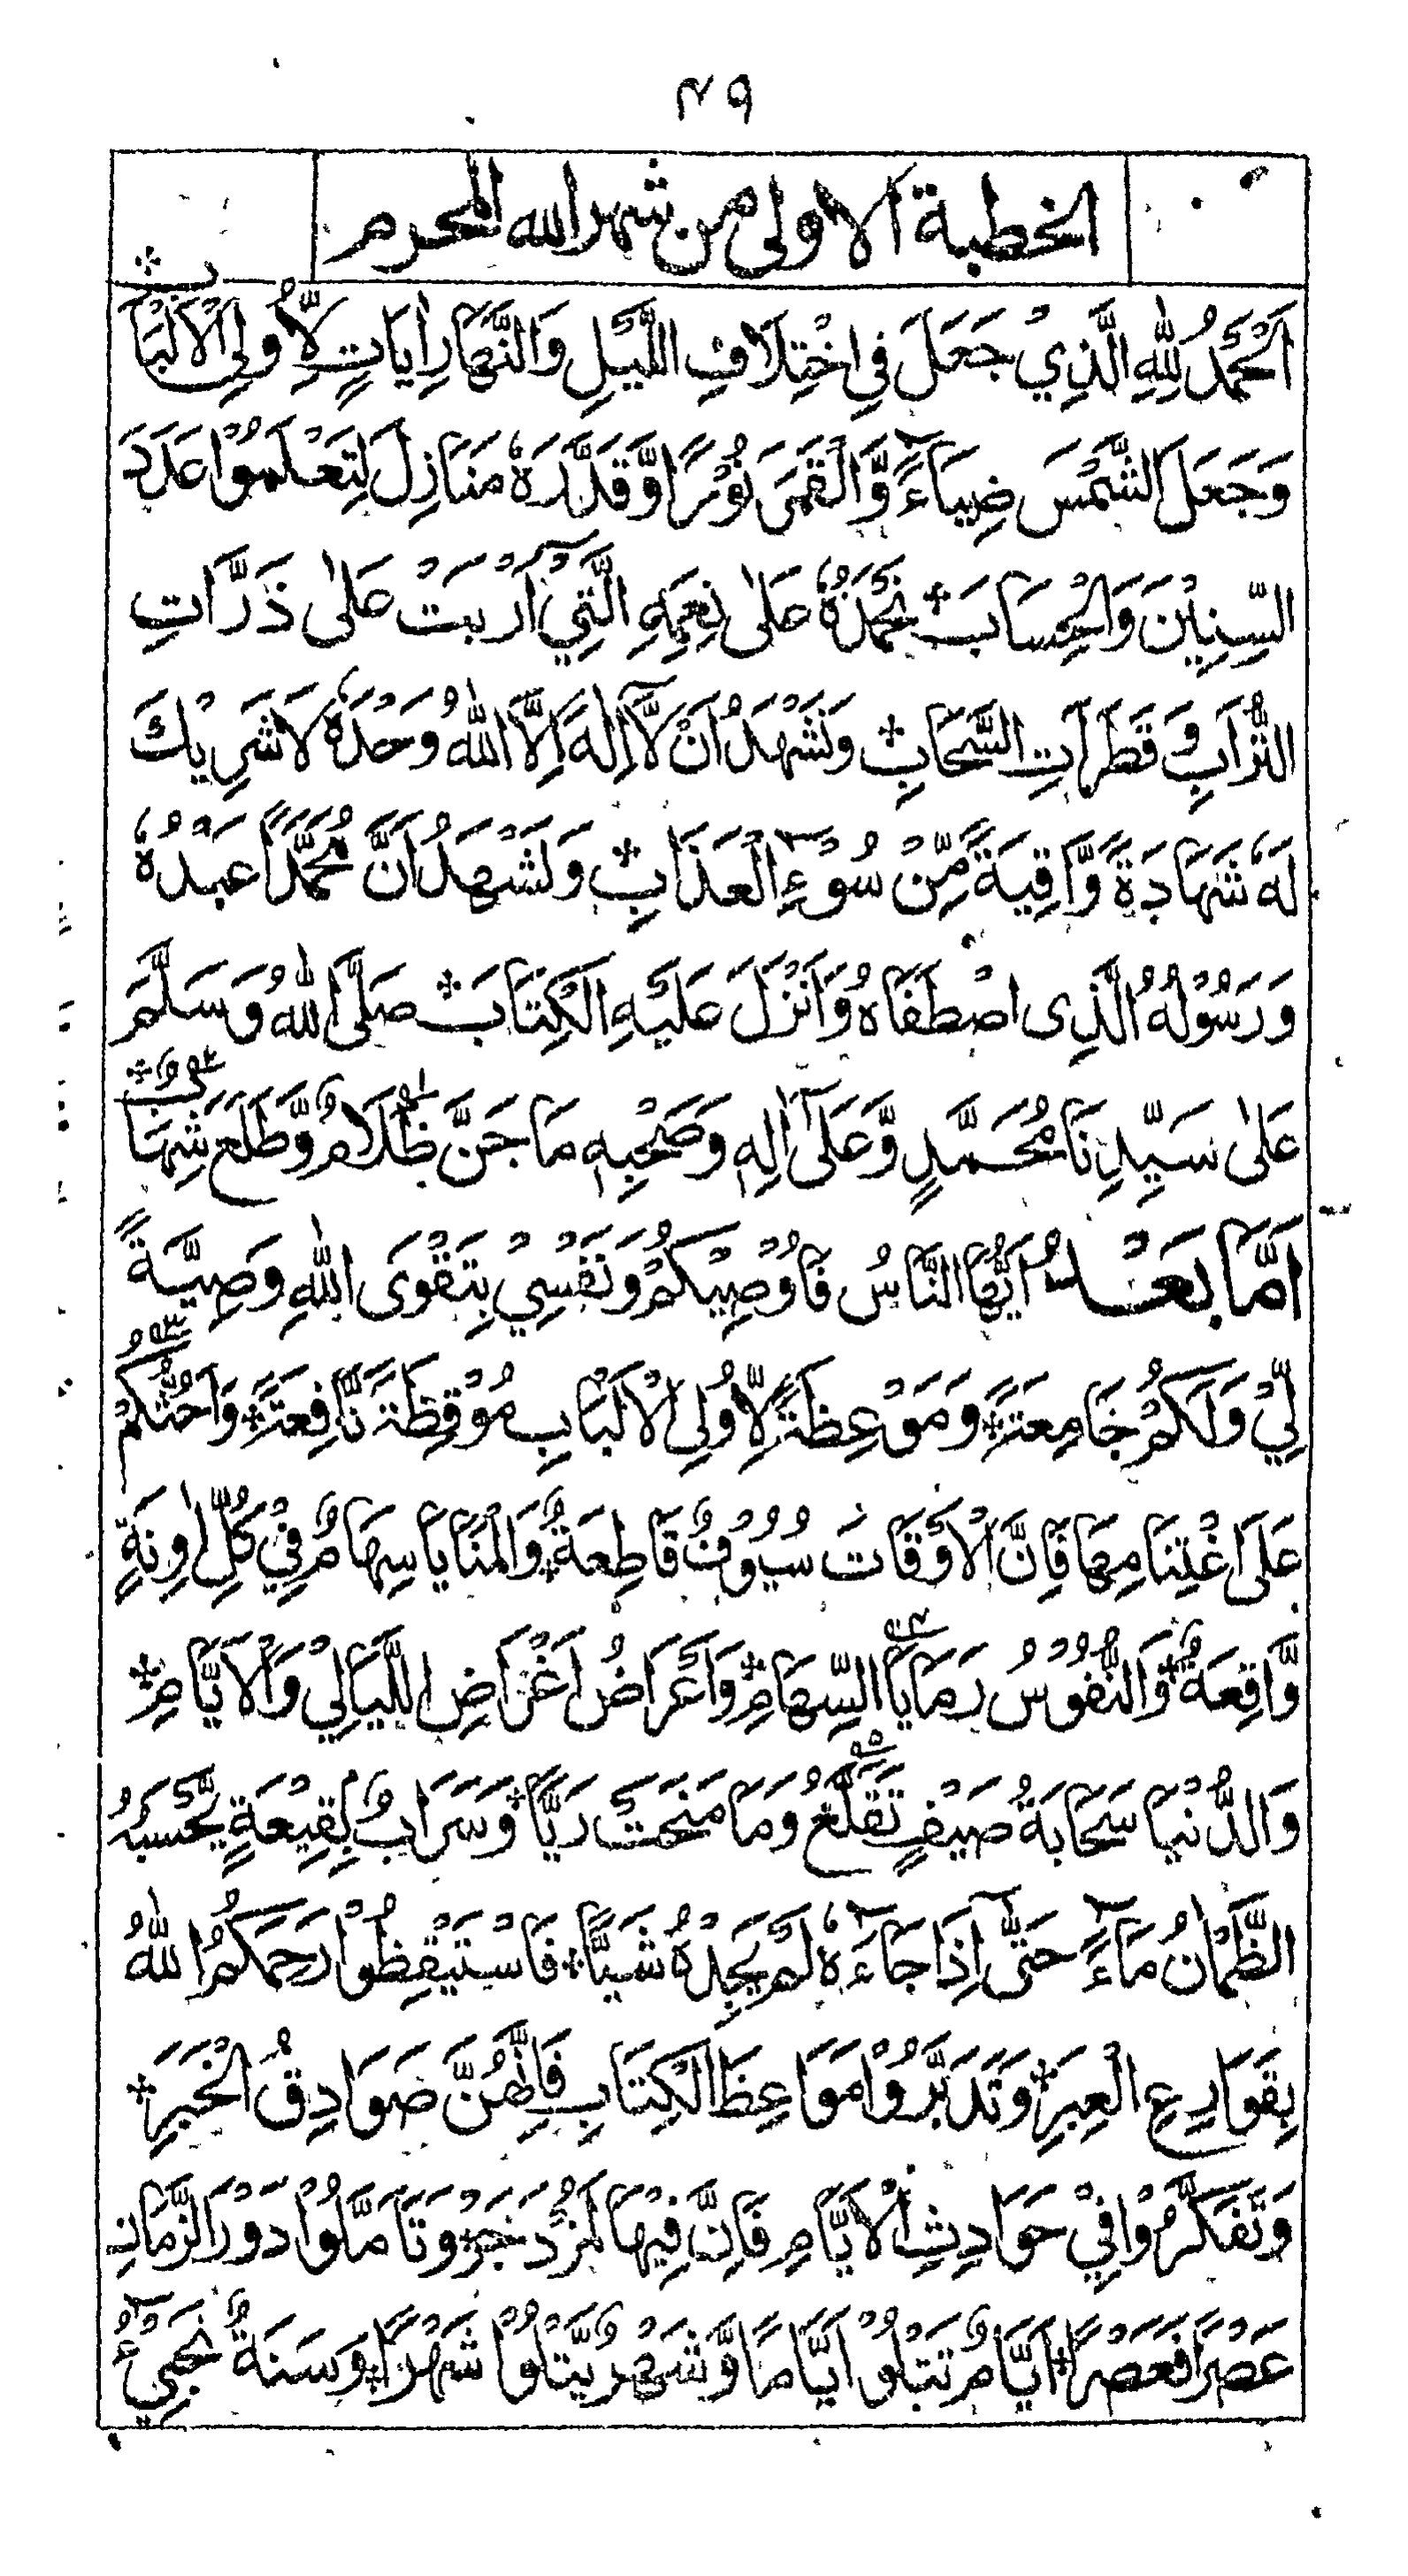 ٤٩
الخطبة الاولى من شهر الله المحرم
اَلْحَمْدُ لِلّٰهِ الَّذِيْ جَعَلَ فِي اخْتِلَافِ اللَّيْلِ وَالنَّهَارِ اٰيَاتٍ لِّاُولِي الْاَلْبَابِ
وَجَعَلَ الشَّمْسَ ضِيَآءً وَّالْقَمَرَ نُوْرًا وَّقَدَّرَهٗ مَنَازِلَ لِتَعْلَمُوْا عَدَدَ
السِّنِيْنَ وَالْحِسَابَ نَحْمَدُهٗ عَلٰى نِعَمِهِ الَّتِيْٓ اَرْبَتْ عَلٰى ذَرَّاتِ
التُّرَابِ وَ قَطَرَاتِ السَّحَابِ وَنَشْهَدُ اَنْ لَّآ اِلٰهَ اِلَّا اللّٰهُ وَحْدَهٗ لَا شَرِيْكَ
لَهٗ شَهَادَةً وَّاقِيَةً مِّنْ سُوْٓءِ الْعَذَابِ وَنَشْهَدُ اَنَّ مُحَمَّدًا عَبْدُهٗ
وَرَسُوْلُهُ الَّذِى اصْطَفَاهُ وَاَنْزَلَ عَلَيْهِ الْكِتَابَ صَلَّى اللّٰهُ وَسَلَّمَ
عَلٰى سَيِّدِنَا مُحَمَّدٍ وَّعَلٰٓى اٰلِهٖ وَصَحْبِهٖ مَا جَنَّ ظَلَامٌ وَّطَلَعَ شِهَابٌ
اَمَّا بَعْدُ اَيُّهَا النَّاسُ فَاُوْصِيْكُمْ وَنَفْسِيْ بِتَقْوَى اللّٰهِ وَصِيَّةً
لِّيْ وَلَكُمْ جَامِعَةً وَمَوْعِظَةً لِّاُولِي الْاَلْبَابِ مُوْقِظَةً نَّافِعَةً وَاَحُثُّكُمْ
عَلَى اغْتِنَامِهَا فَاِنَّ الْاَوْقَاتَ سُيُوْفٌ قَاطِعَةٌ وَالْمَنَايَا سِهَامٌ فِيْ كُلِّ اٰوِنَةٍ
وَّاقِعَةٌ وَالنُّفُوْسُ رَمَايَا السِّهَامِ وَاَعْرَاضُ اَغْرَاضِ اللَّيَالِيْ وَالْاَيَّامِ
وَالدُّنْيَا سَحَابَةُ صَيْفٍ تَقَلَّعُ وَمَا مَنَحَتْ رَيًّا وَسَرَابٌ بِقِيْعَةٍ يَّحْسَبُهُ
الظَّمْاٰنُ مَآءً حَتّٰٓى اِذَا جَآءَهٗ لَمْ يَجِدْهُ شَيْئًا فَاسْتَيْقِظُوْا رَحِمَكُمُ اللّٰهُ
بِقَوَارِعِ الْعِبَرِ وَتَدَبَّرُوْا مَوَاعِظَ الْكِتَابِ فَاِنَّهُنَّ صَوَادِقُ الْخَبَرِ
وَتَفَكَّرُوْا فِيْ حَوَادِثِ الْاَيَّامِ فَاِنَّ فِيْهَا لَمُزْدَجَرٌ وَتَاَمَّلُوْا دَوْرَ الزَّمَانِ
عَصْرًا فَعَصْرًا اَيَّامٌ تَتْلُوْٓ اَيَّامًا وَّشَهْرٌ يَّتْلُوْا شَهْرًا وَسَنَةٌ تَجِيْٓءُ